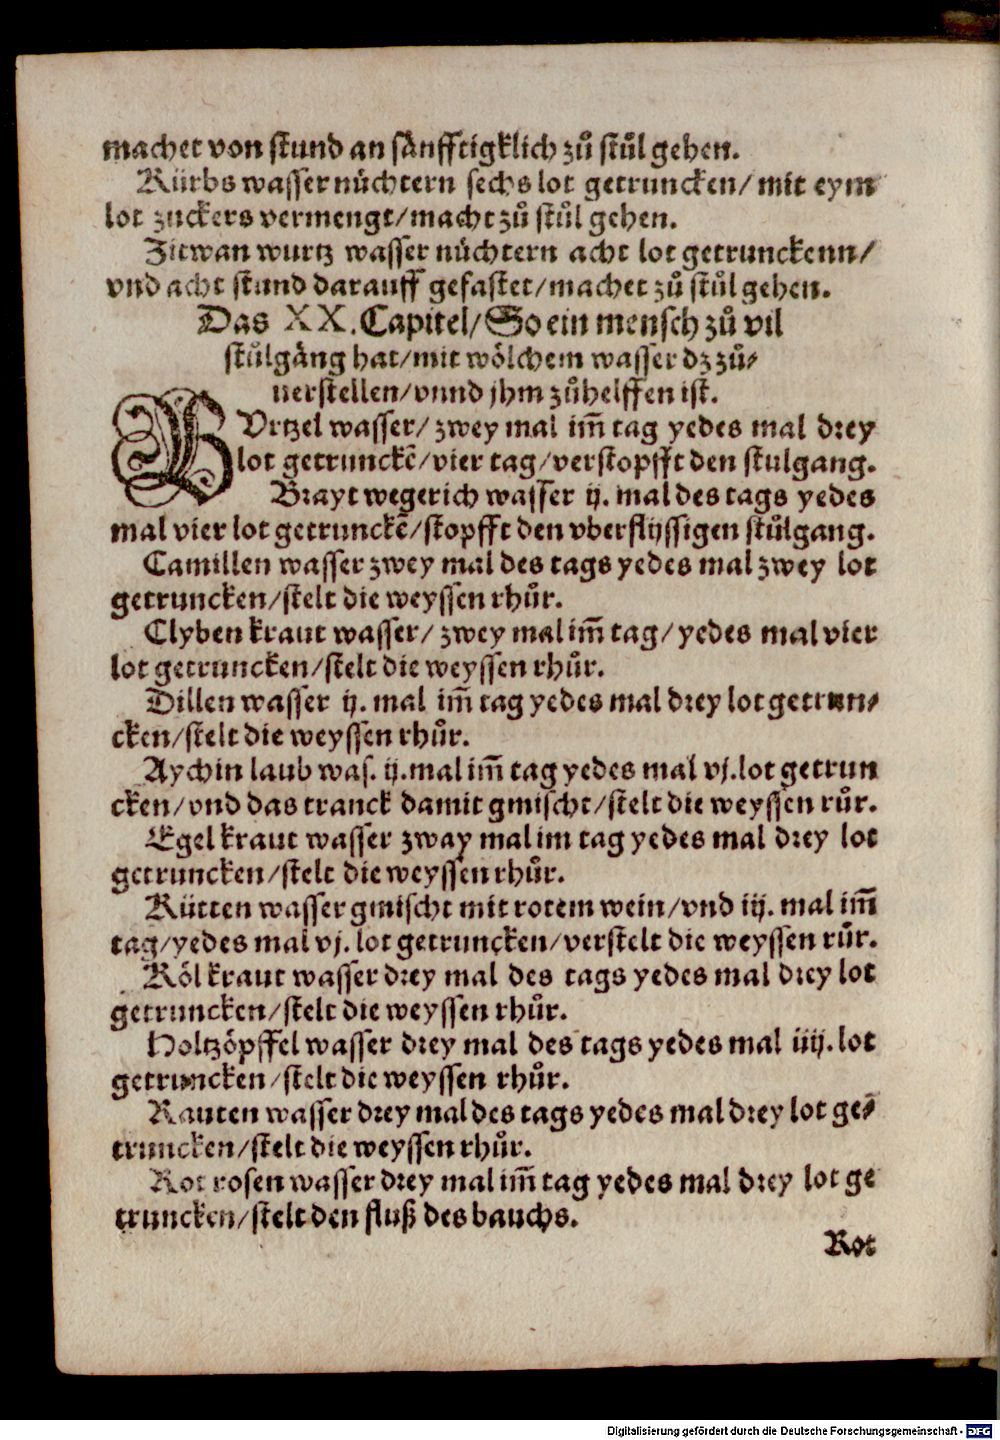 machet von stund an sånfftigklich zů stůl gehen.
Kürbs wasser nůchtern sechs lot getruncken/ mit eym
lot zuckers vermengt/macht zů stůl gehen.
Zitwan wurtz wasser nůchtern acht lot getrunckenn/
vnd acht stund darauff gefastet/machet zů stůl gehen.
Das XX. Capitel/So ein mensch zů vil
stůlgång hat/mit wölchem wasser dz zů⸗
uerstellen/vnnd jhm zůhelffen ist.
BVrtzel wasser/ zwey mal im̄ tag yedes mal drey
lot getrunckē/vier tag/verstopfft den stulgang.
Brayt wegerich wasser ij. mal des tags yedes
mal vier lot getrunckē/stopfft den vberflyssigen stůlgang.
Camillen wasser zwey mal des tags yedes mal zwey lot
getruncken/stelt die weyssen rhůr.
Clyben kraut wasser/ zwey mal im̄ tag/ yedes mal vier
lot getruncken/stelt die weyssen rhůr.
Dillen wasser ij. mal im̄ tag yedes mal drey lot getrun⸗
cken/stelt die weyssen rhůr.
Aychin laub was. ij.mal im̄ tag yedes mal vj.lot getrun
cken/vnd das tranck damit gmischt/stelt die weyssen růr.
Egel kraut wasser zway mal im tag yedes mal drey lot
getruncken/stelt die weyssen rhůr.
Kütten wasser gmischt mit rotem wein/vnd iij. mal im̄
tag/yedes mal vj. lot getruncken/verstelt die weyssen růr.
Köl kraut wasser drey mal des tags yedes mal drey lot
getruncken/stelt die weyssen rhůr.
Holtzöpffel wasser drey mal des tags yedes mal iiij. lot
getruncken/stelt die weyssen rhůr.
Rauten wasser drey mal des tags yedes mal drey lot ge⸗
truncken/stelt die weyssen rhůr.
Rot rosen wasser drey mal im̄ tag yedes mal drey lot ge
truncken/stelt den fluß des bauchs.
Rot
Digitalisierung gefördert durch die Deutsche Forschungsgemeinschaft - DFG